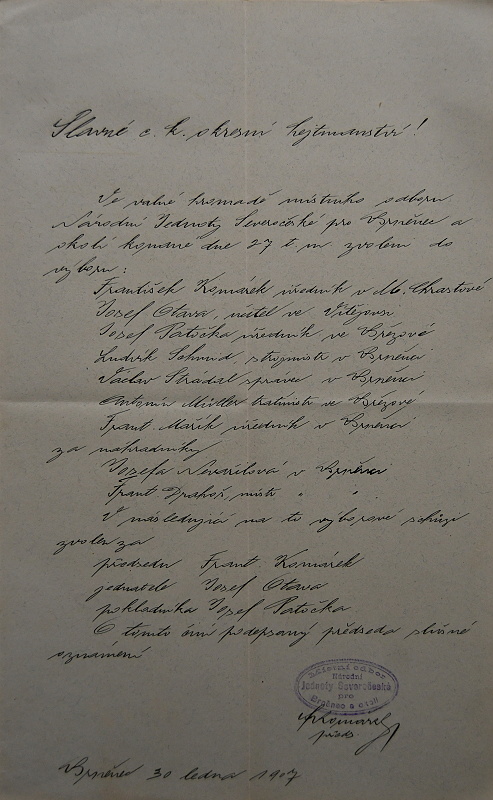 Slavné c. k. okresní hejtmanství!
Ve valné hromadě místního odboru
Národní Jednoty Severočeské pro Brněnec a
okolí konané dne 27 t. m. zvoleni do
výboru:
František Komárek úředník v M. Chrastové
Josef Otava, učitel ve Vítějevsi
Josef Patočka úředník ve Březové
Ludvík Schmid, strojmistr v Brněnci
Václav Strádal správce v Brněnci
Antonín Mütler traťmistr ve Březové
Frant. Mařík úředník v Brněnci
za náhradníky
Josefa Nevařilová v Brněnci
Frant. Drahoš, mistr " "
V následující na to výborové schůzi
zvolen za
předsedu Frant. Komárek
jednatele Josef Otava
pokladníka Josef Patočka
O tomto činí podepsaný předseda slušné
oznámení
Místní odbor
Národní
Jednoty Severočeské
pro
Brněnec a okolí
Komárek
předs.
Brněnec 30 ledna 1907